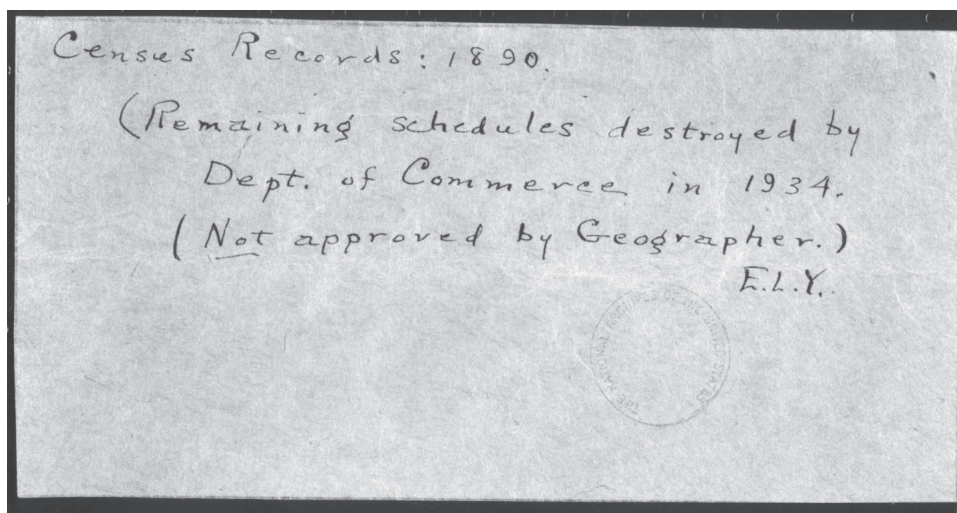 Census Records: 1890.
(Remaining schedules destroyed by
Dept. of Commerce in 1934.
(Not approved by Geographer.)
E.L.Y.
THE NATIONAL ARCHIVES OF THE UNITED STATES